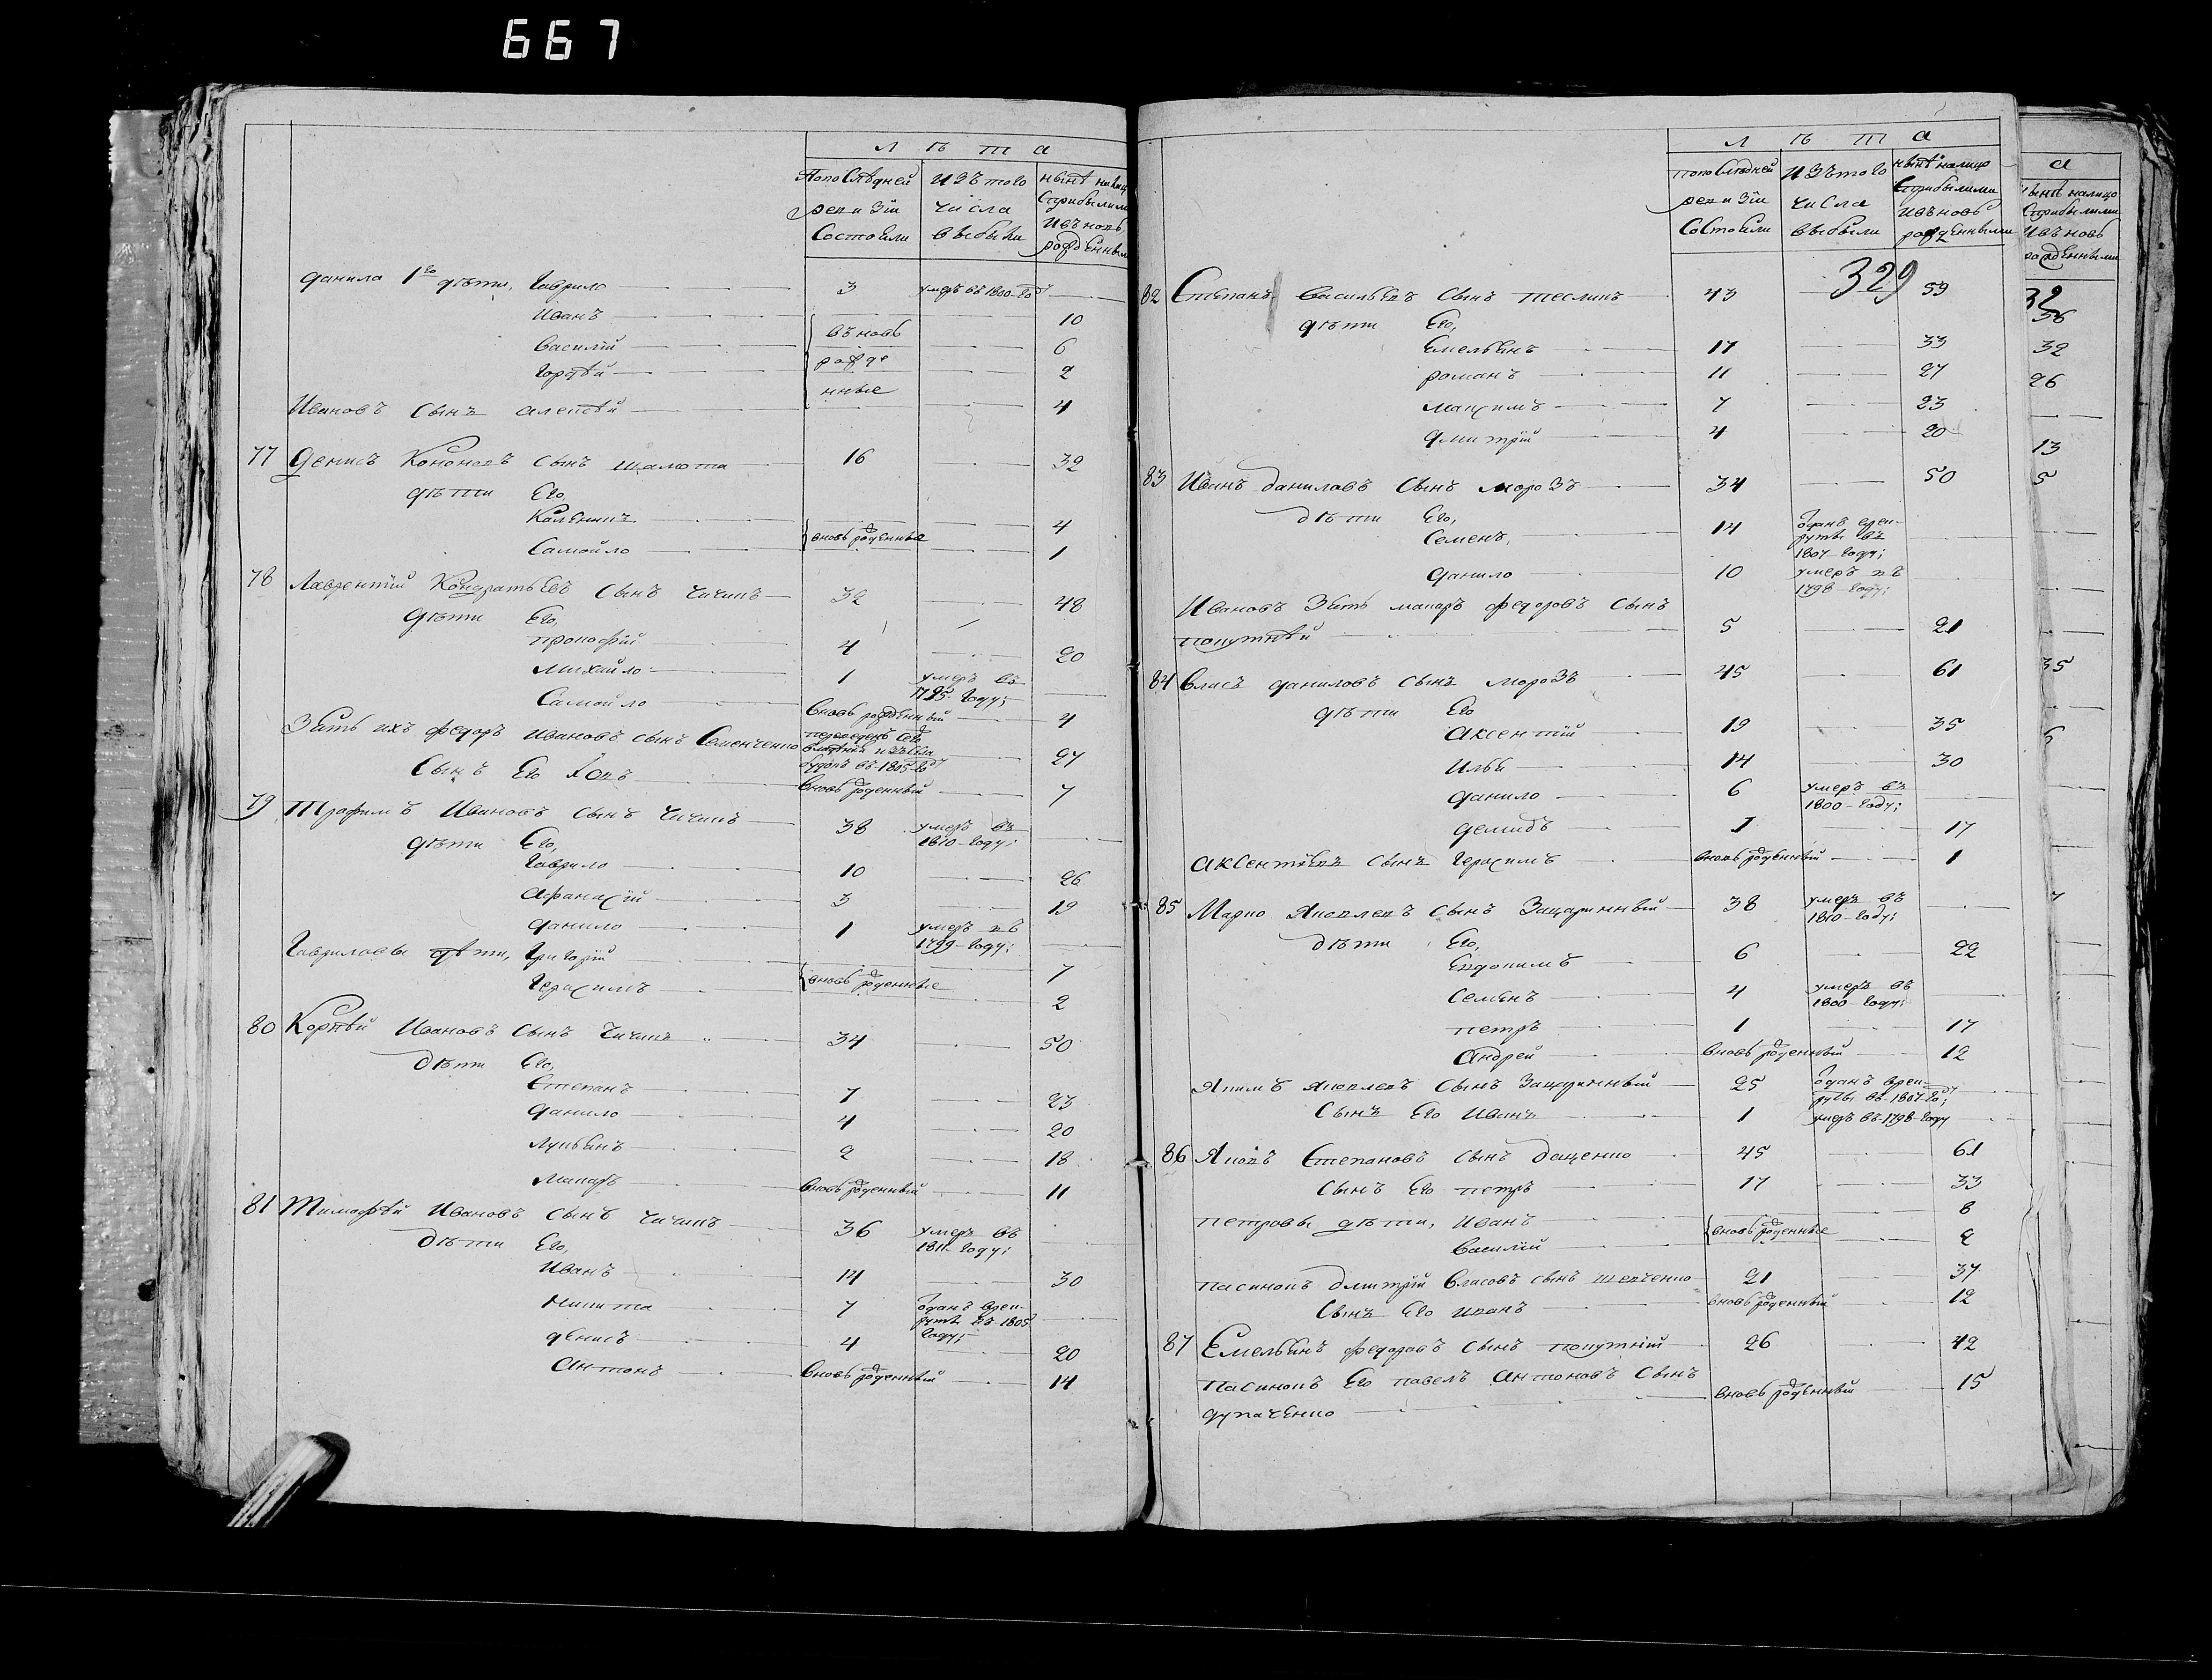 667
Л Ѣ Т А
Попослѣдней ревизіи состояли
изъ того числа выбыли
нынѣ налицо
Данила 1го дѣти, Гаврило 3 умеръ въ 1800 году
Иванъ 10
Василій вновь рожденные 6
Гордѣй 2
Ивановъ сынъ Алексѣй 4
77 Денисъ Кононовъ сынъ Шамота 16 32
дѣти Его,
Каленикъ 4
Самойло вновь рожденные 1
78 Лаврентій Кондратьевъ сынъ Чичикъ 32 48
дѣти Его,
Прокофій 4 20
Михайло 1 умеръ въ 1795 году;
Самойло вновь рожденный 4
Зять ихъ Федоръ Ивановъ сынъ Семенченко 27
Сынъ Его вновь рожденный 7
79 Трофимъ Ивановъ сынъ Чичикъ 38 умеръ въ 1810 году;
дѣти Его,
Гаврило 10 26
Афанасій 3 19
Данило 1 умеръ въ 1799 году;
Гавриловы дѣти, Григорій 7
Герасимъ вновь рожденные 2
80 Корнѣй Ивановъ сынъ Чичикъ 34 50
дѣти Его,
Степанъ 7 23
Данило 4 20
Лукьянъ 2 18
Макаръ вновь рожденный 11
81 Тимофѣй Ивановъ сынъ Чичикъ 36 умеръ въ 1811 году;
дѣти Его,
Иванъ 14 30
Никита 7 отданъ врекруты въ 1805 году;
Денисъ 4 20
Антонъ вновь рожденный 14
Л Ѣ Т А
попослѣдней ревизіи состояли
изъ того числа выбыли
нынѣ налицо сприбылыми ивъновь рожденными
329
82 Степанъ Васильевъ сынъ Теслинъ 43 59
дѣти Его,
Емельянъ 17 33
Романъ 11 27
Максимъ 7 23
Дмитрій 4 20
83 Иванъ Даниловъ сынъ Морозъ 34 50
дѣти Его,
Семенъ, 14 отданъ врекруты въ 1807 году;
Данило 10 умеръ въ 1798 году;
Ивановъ зять Макаръ Федоровъ сынъ
Покутнѣй 5 21
84 Власъ Даниловъ сынъ Морозъ 45 61
дѣти Его
Аксентій 19 35
Илья 14 30
Данило 6 умеръ въ 1800 году;
Демидъ 1 17
Аксентіевъ сынъ Герасимъ вновь рожденный 1
85 Марко Яковлевъ сынъ Зацаринный 38 умеръ въ 1810 году;
дѣти Его,
Евдокимъ 6 22
Семенъ 4 умеръ въ 1800 году;
Петръ 1 17
Андрей вновь рожденный 12
Якимъ Яковлевъ сынъ Зацаринный 25 отданъ врекруты въ 1807 году;
сынъ Его Иванъ 1 умеръ въ 1798 году
86 Яковъ Степановъ сынъ Даценко 45 61
сынъ Его Петръ 17 33
Петровы дѣти, Иванъ 8
Василій вновь рожденные 2
Пасинокъ Дмитрій Власовъ сынъ Шевченко 21 37
Сынъ Его Иванъ вновь рожденный 12
87 Емельянъ Федоровъ сынъ Покутній 26 42
Пасинокъ Его Павелъ Антоновъ сынъ вновь рожденный 15